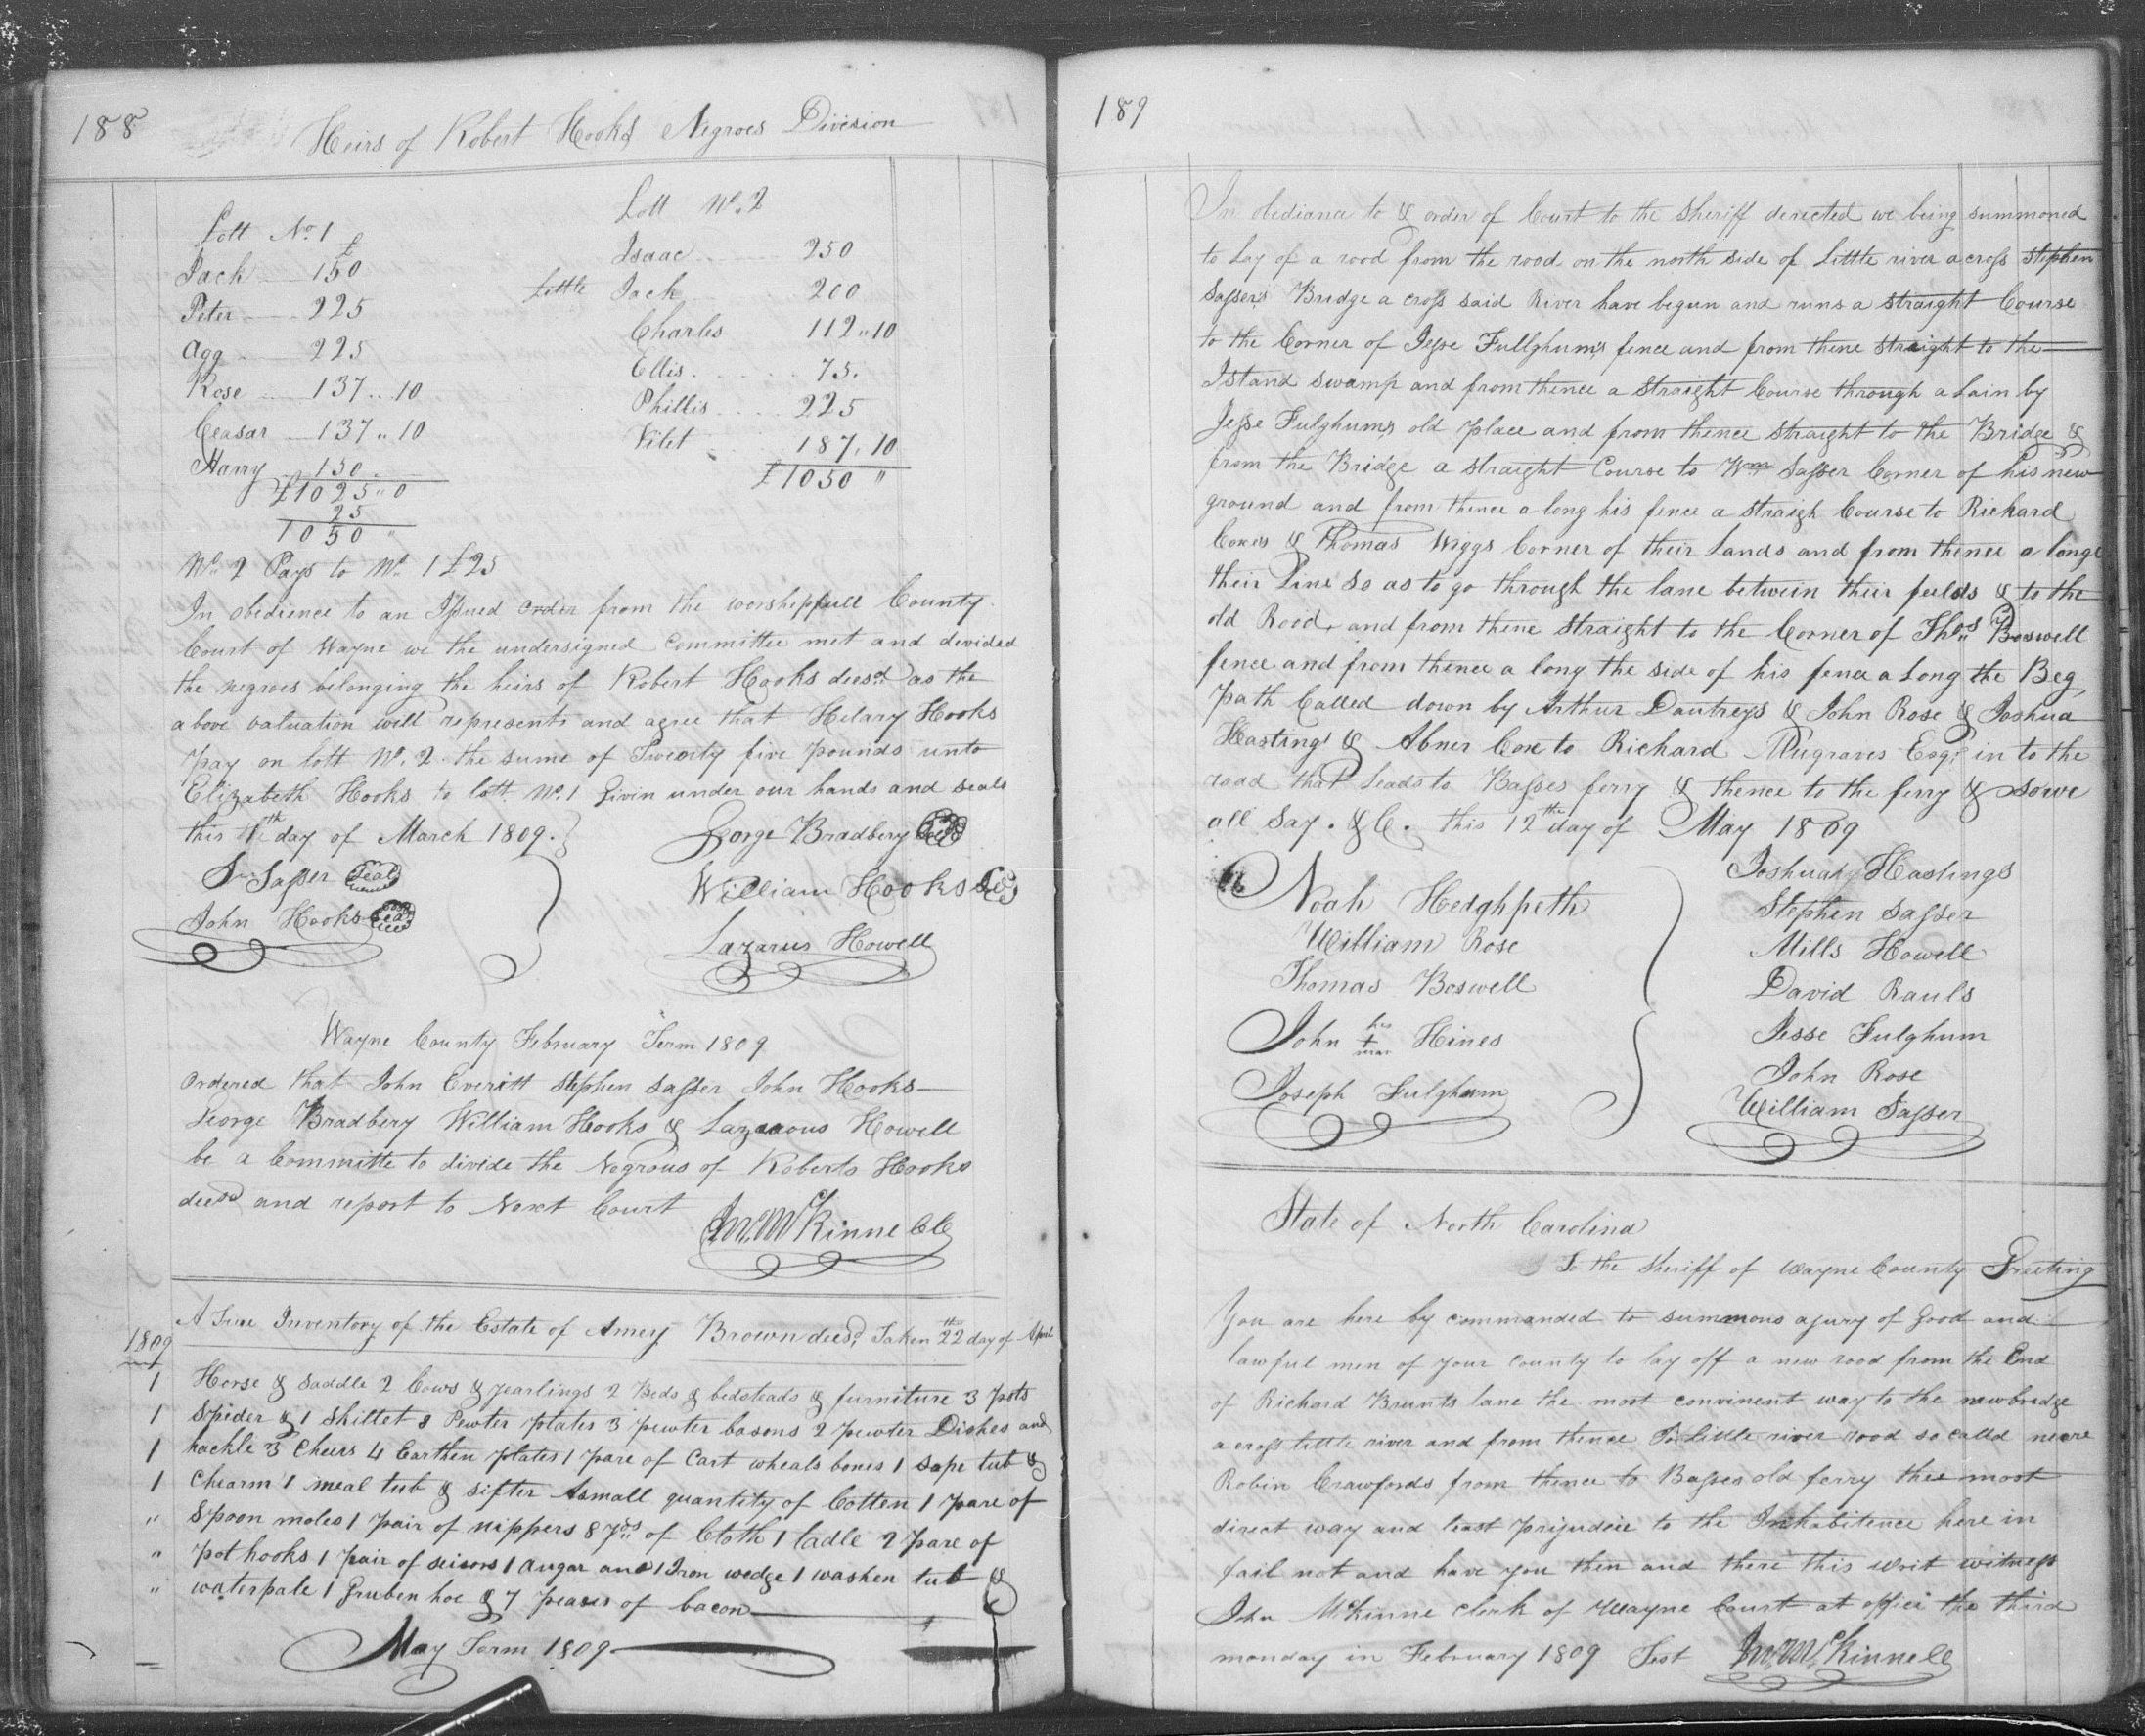 188
Heirs of Robert Hooks Negroes Division
Lott No. 1
£
Jack 150
Peter 225
Agg 225
Rose 137..10
Ceasar 137..10
Harry 150
£1025..0
25
1050 "
Lott No. 2
Isaac 250
Little Jack 200
Charles 112..10
Ellis 75.
Phillis 225
Vilet 187,10
£1050 "
No. 2 Pays to No. 1 £25
In obedience to an Issued order from the worshepfull County
Court of Wayne we the undersigned committee met and devided
the negroes belonging the heirs of Robert Hooks decsd as the
above valuation will represents and agree that Helary Hooks
pay on lott No. 2 the sume of Twenty five pounds unto
Elizabeth Hooks to lott No. 1 Givin under our hands and seals
this day of March 1809.
George Bradbery Seal
Sasser Seal
William Hooks
John Hooks Seal
Lazarus Howell
Wayne County February Term 1809
Ordered that John Everitt Stephen Sasser John Hooks
George Bradbery William Hooks & Lazarous Howell
be a Committe to divide the Negrous of Roberts Hooks
decsd and report to Next Court
Jno. McKinne CC
1809 A True Inventory of the Estate of Amey Brown decsd, Taken 22th day of April
1 Horse & Saddle 2 Cows & yearlings 2 Beds & bedsteads & furniture 3 pots
1 Spider & 1 Skillet 8 Pewter plates 3 pewter basons 2 pewter Dishes and
1 hackle 3 Cheers 4 Earthen plates 1 pare of Cart wheals bones 1 Sope tub &
1 Chearm 1 meal tub & sifter Asmall quantity of Cotten 1 pare of
" Spoon moles 1 pair of nippers 8 yds of Cloth 1 ladle 2 pare of
" pot hooks 1 pair of seisors 1 augar and 1 Iron wedge 1 washen tub &
" waterpale 1 Gruben hoe & 7 peases of bacon
May Term 1809
189
In obediance to & order of Court to the Sheriff derected we being summoned
to Lay of a rood from the rood on the north side of Little river a cross Stephen
Sassers Bridge a cross said River have begun and runs a straight Course
to the Corner of Jesse Fullghums fence and from thene straight to the
Island swamp and from thence a straight Course through a Lain by
Jesse Fulghums old place and from thence straight to the Bridge &
from the Bridge a straight Course to Wm Sasser Corner of his new
ground and from thence a long his fence a straigh Course to Richard
Coxes & Thomas Wiggs Corner of their Lands and from thence a long
their Line so as to go through the lane betwein their feelds & to the
old Rood, and from thene straight to the Corner of Thos Boswell
fence and from thence a long the side of his fence a Long the Beg
Path Called down by Arthur Dautreys & John Rose & Joshua
Hastings & Abner Cox to Richard Mugraves Esqr in to the
road that Leads to Basses ferry & thence to the ferry & sowe
all Say. &C. this 12th day of May 1809
Noah Hedghpeth
William Rose
Thomas Boswell
John his + mar Hines
Joseph Fulghum
Joshuah Hastings
Stephen Sasser
Mills Howell
David Rauls
Jesse Fulghum
John Rose
William Sasser
State of North Carolina
To the Sheriff of Wayne County Greeting
You are here by commanded to summons a jury of Good and
lawful men of your county to lay off a new rood from the End
of Richard Brunts lane the most convinent way to the new bridge
a cross little river and from thence To Little river rood so called neare
Robin Crawfords from thence to Basses old ferry thee most
direct way and least prijudice to the Inhabitence here in
fail not and have you then and there this writ witness
John McKinne Clerk of Wayne Court at office the third
monday in February 1809 Test Jno. McKinne CC